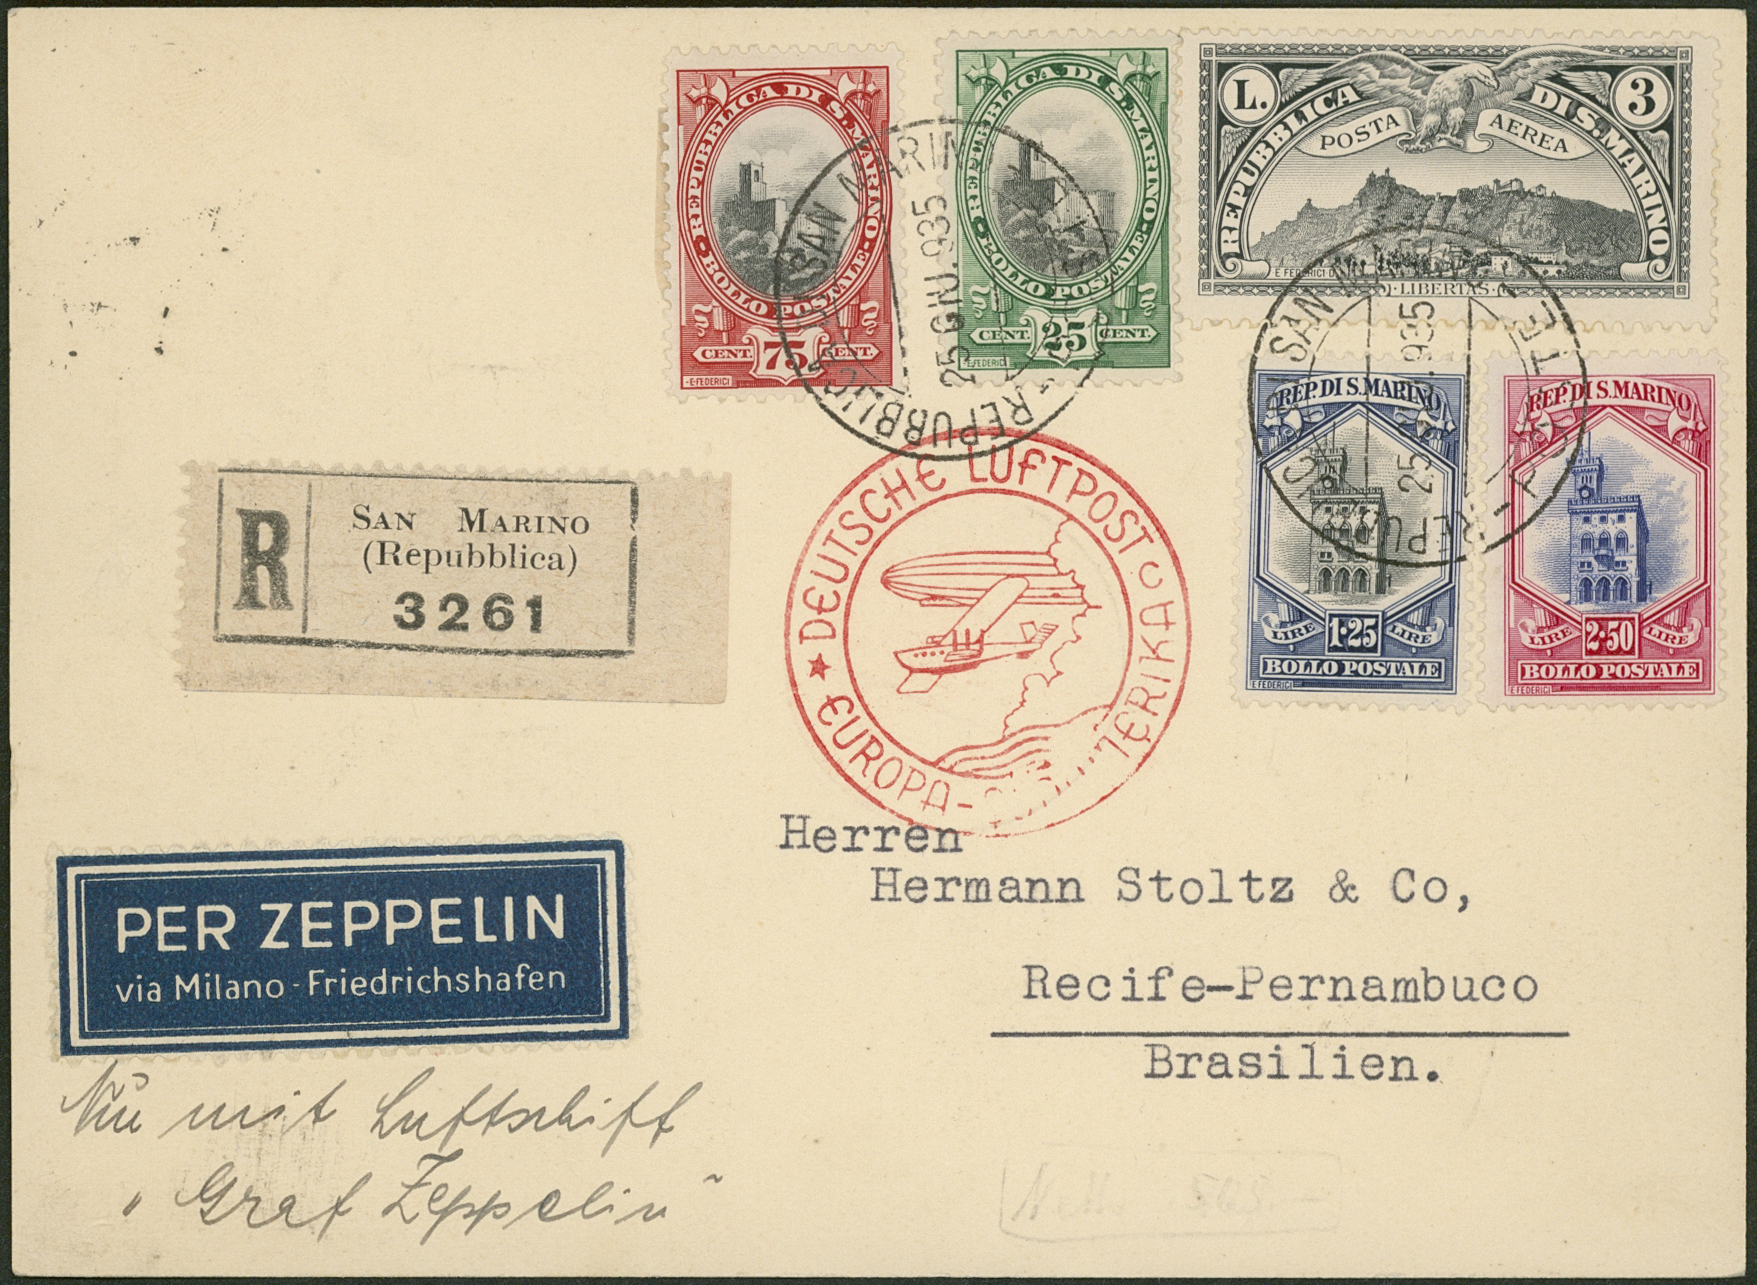 REPUBBLICA DI S. MARINO
BOLLO POSTALE
CENT. 75 CENT.
E·FEDERICI
REPUBBLICA DI S. MARINO
BOLLO POSTALE
CENT. 25 CENT.
E·FEDERICI
L. 3
REPUBBLICA DI S. MARINO
POSTA AEREA
E FEDERICI·D
·LIBERTAS·
SAN MARINO
25 GIU. 935
REPUBBLICA
SAN
25 935
POSTE
REP. DI S. MARINO
LIRE 1·25 LIRE
BOLLO POSTALE
E FEDERICI
REP. DI S. MARINO
LIRE 2·50 LIRE
BOLLO POSTALE
E FEDERICI
R
SAN MARINO
(Repubblica)
3261
★ DEUTSCHE LUFTPOST
EUROPA-
Herren
Hermann Stoltz & Co,
Recife-Pernambuco
Brasilien.
PER ZEPPELIN
via Milano-Friedrichshafen
Nur mit Luftschiff
„Graf Zeppelin"